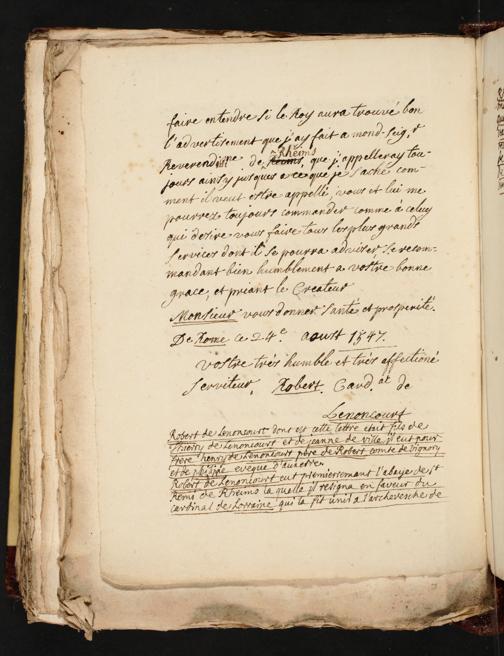 faire entendre si le Roy aura trouvé bon
l'advertisement que j'ay fait a mond. seig. et
Reverendisme de Rheims, que j'appelleray tou-
jours ainsy jusques a ce que je sache com-
ment il veut estre appellé, vous et lui me
pourrez toujours commander comme à celuy
qui desire vous faire tous les plus grands
services dont il se pourra adviser se recom-
mandant bien humblement a vostre bonne
grace, et priant le Createur
Monsieur vous donner santé et prosperité.
De Rome ce 24e. aoust 1547.
vostre très humble et très affectioné
serviteur, Robert. Card.al de
Lenoncourt
Robert de Lenoncourt dont est cette lettre etait fils de
Thierry de Lenoncourt et de jeanne de ville, il eut pour
frere henry de Lenoncourt pere de Robert comte de Vignory
et de philipe eveque d'auxerre.
Robert de Lenoncourt eut premierement l'abaye de st
Remi de Rheims la quelle il resigna en faveur du
cardinal de Lorraine qui la fit unir a l'archevesché de